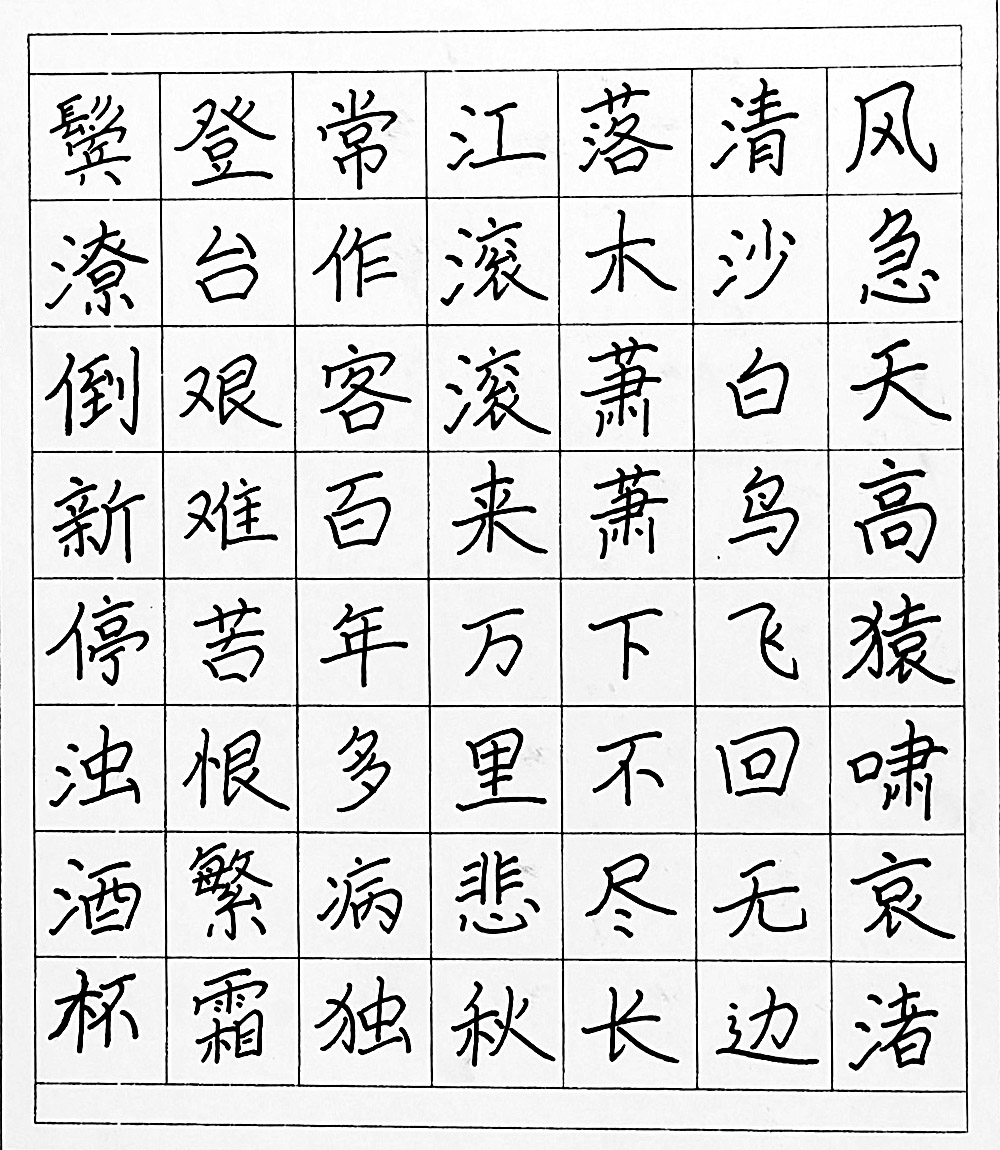 风急天高猿啸哀渚
清沙白鸟飞回无边
落木萧萧下不尽长
江滚滚来万里悲秋
常作客百年多病独
登台艰难苦恨繁霜
鬓潦倒新停浊酒杯